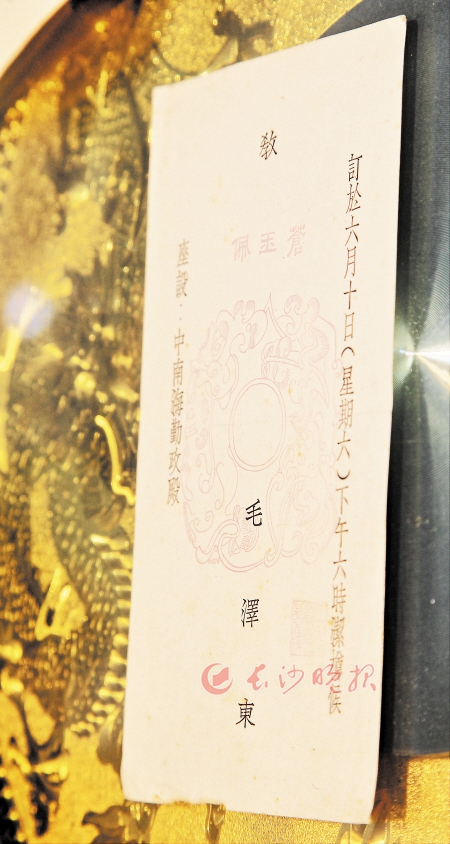 訂於六月十日(星期六)下午六時潔樽候
教
毛澤東
座設:中南海勤政殿
蒼玉佩
長沙晚报